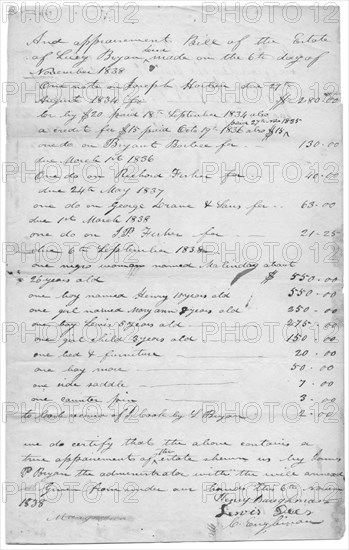 And appraisement Bill of the Estate
of Lucy Bryan made on the 6th day of
November 1838
One note on Joseph due 27th
August 1834 for $ 280.00
by $20 paid 18th September 1834 also
a credit for $15 paid Octo 17th 1836 also $15
one do on Bryant Burbee for 130.00
due March 1st 1836
One do on Richard Ferber for 40.00
due 24th May 1837
one do on George Deane & Sons for 63.00
due 1st March 1838
one do on J P Ferber for 21.25
due 6th September 1838
one negro woman named Saturday about
26 years old $ 550.00
one boy named Henry 10 years old 550.00
one girl named Mary ann 8 years old 350.00
one boy Lewis 5 years old 275.00
one girl child 3 years old 150.00
one bed & furniture 20.00
one bay mare 50.00
one side saddle 7.00
one counter pin 3.00
to Cash of J Cook by L Bryan 2.00
we do certify that the above contains a
true appraisement of the estate shewn us by
P Bryan the administrator with the will annexed
Given from under our hands this 6th
1838 Henry Baughman
Lewis Deer